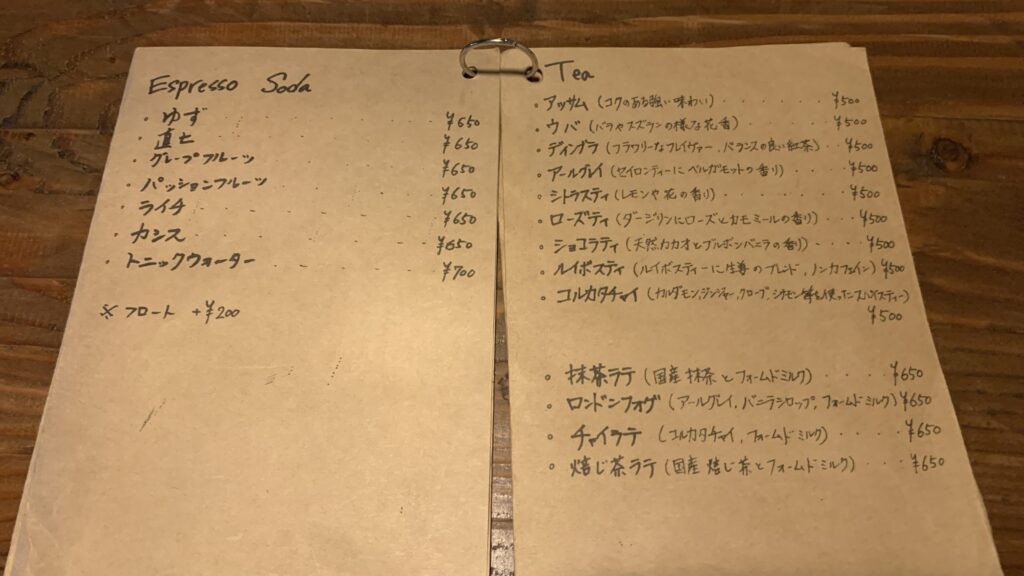 Espresso Soda
・ゆず ¥650
・直七 ¥650
・グレープフルーツ ¥650
・パッションフルーツ ¥650
・ライチ ¥650
・カシス ¥650
・トニックウォーター ¥700
※ フロート +¥200
Tea
・アッサム (コクのある強い味わい) ¥500
・ウバ (バラやスズランの様な花香) ¥500
・ディンブラ (フラワリーなフレイヴァー、バランスの良い紅茶) ¥500
・アールグレイ (セイロンティーにベルガモットの香り) ¥500
・シトラスティ (レモンや花の香り) ¥500
・ローズティ (ダージリンにローズとカモミールの香り) ¥500
・ショコラティ (天然カカオとブルボンバニラの香り) ¥500
・ルイボスティ (ルイボスティーに生姜のブレンド、ノンカフェイン) ¥500
・コルカタチャイ (カルダモン、ジンジャー、クローブ、シナモン等を使ったスパイスティー)
¥500
・抹茶ラテ (国産抹茶とフォームドミルク) ¥650
・ロンドンフォグ (アールグレイ、バニラシロップ、フォームドミルク) ¥650
・チャイラテ (コルカタチャイ、フォームドミルク) ¥650
・焙じ茶ラテ (国産焙じ茶とフォームドミルク) ¥650